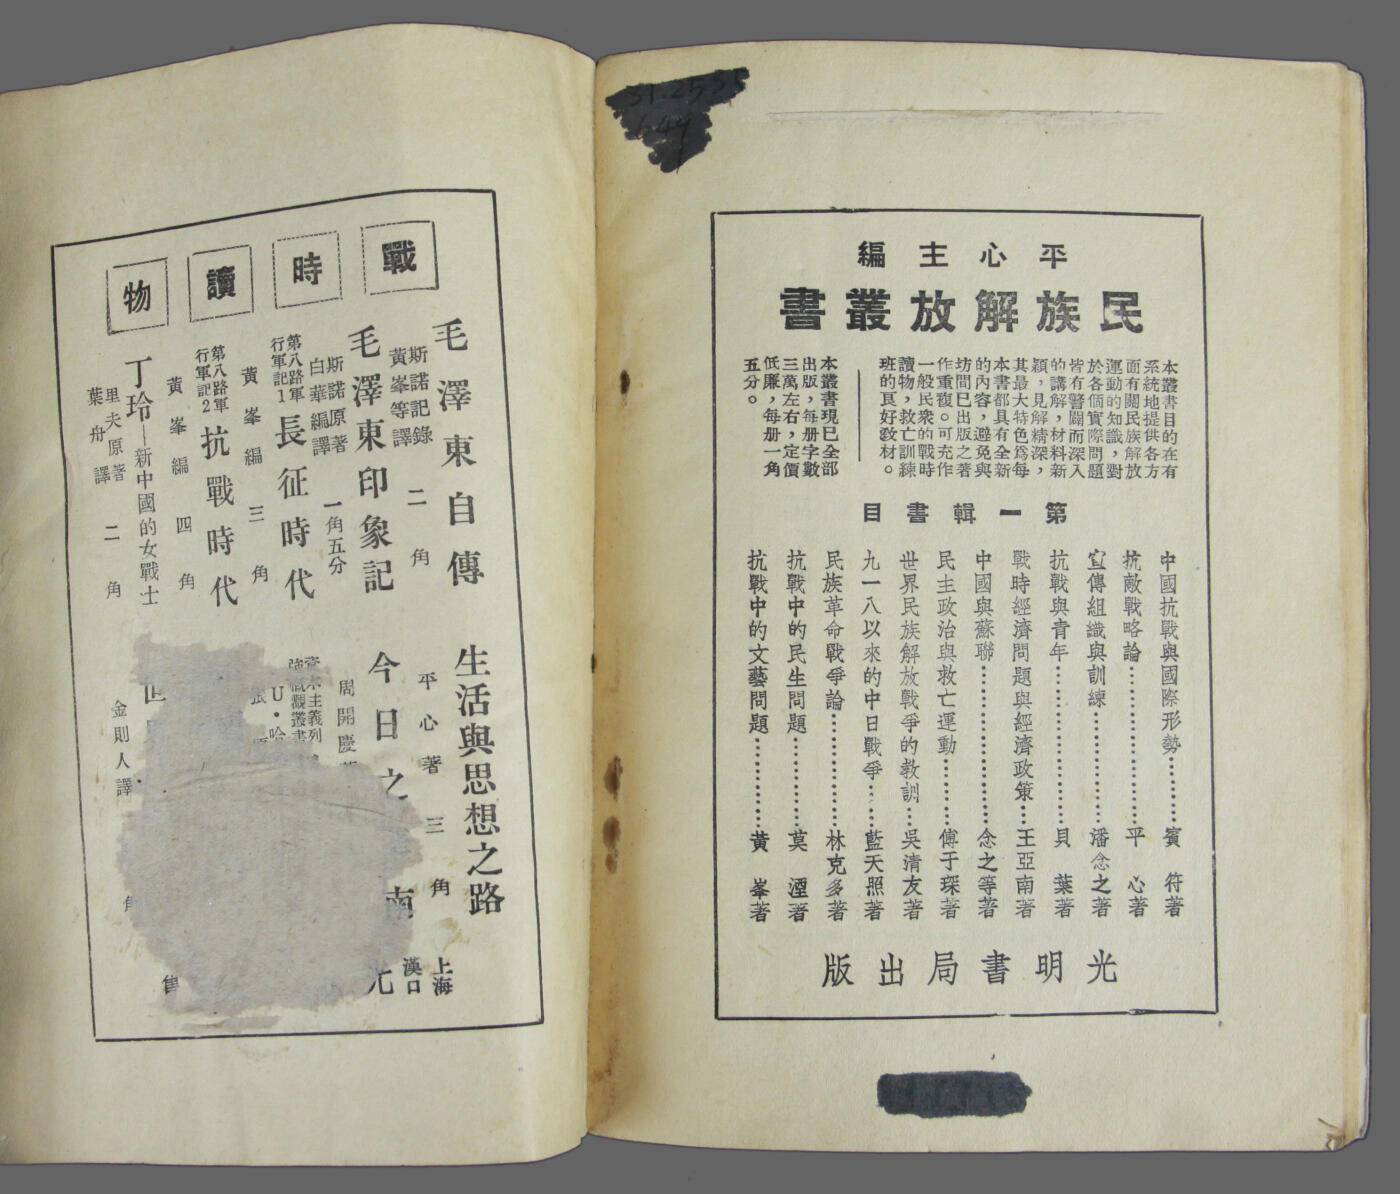 平心主編
民族解放叢書
本叢書目的在有
系統地提供各方
面有關民族解放
運動的知識，對
於各個實際問題
皆有警闢而深入
的講解，材料新
穎，見解精深，
其最大特色爲每
本書都具有全新
的內容，避免與
坊間已出版之著
作重複。可充作
一般民衆的戰時
讀物，救亡訓練
班的良好教材。
本叢書現已全部
出版，每册字數
三萬左右，定價
低廉，每册一角
五分。
第一輯書目
中國抗戰與國際形勢…………賓符著
抗敵戰略論…………平心著
宣傳組織與訓練…………潘念之著
抗戰與青年…………貝葉著
戰時經濟問題與經濟政策…王亞南著
中國與蘇聯…………念之等著
民主政治與救亡運動…………傅于琛著
世界民族解放戰爭的教訓…吳清友著
九一八以來的中日戰爭…藍天照著
民族革命戰爭論…………林克多著
抗戰中的民生問題…………莫湮著
抗戰中的文藝問題…………黃峯著
光明書局出版
31.2535
649
戰時讀物
毛澤東自傳
斯諾記錄
黃峯等譯
二角
毛澤東印象記
斯諾原著
白華編譯
一角五分
第八路軍
行軍記1
長征時代
黃峯編
三角
第八路軍
行軍記2
抗戰時代
黃峯編
四角
丁玲—新中國的女戰士
里夫原著
葉舟譯
二角
生活與思想之路
平心著
三角
今日之
南
周開慶
資本主義列
強概觀叢書
U·哈
張
世
金則人譯
角
上海
漢口
光
售